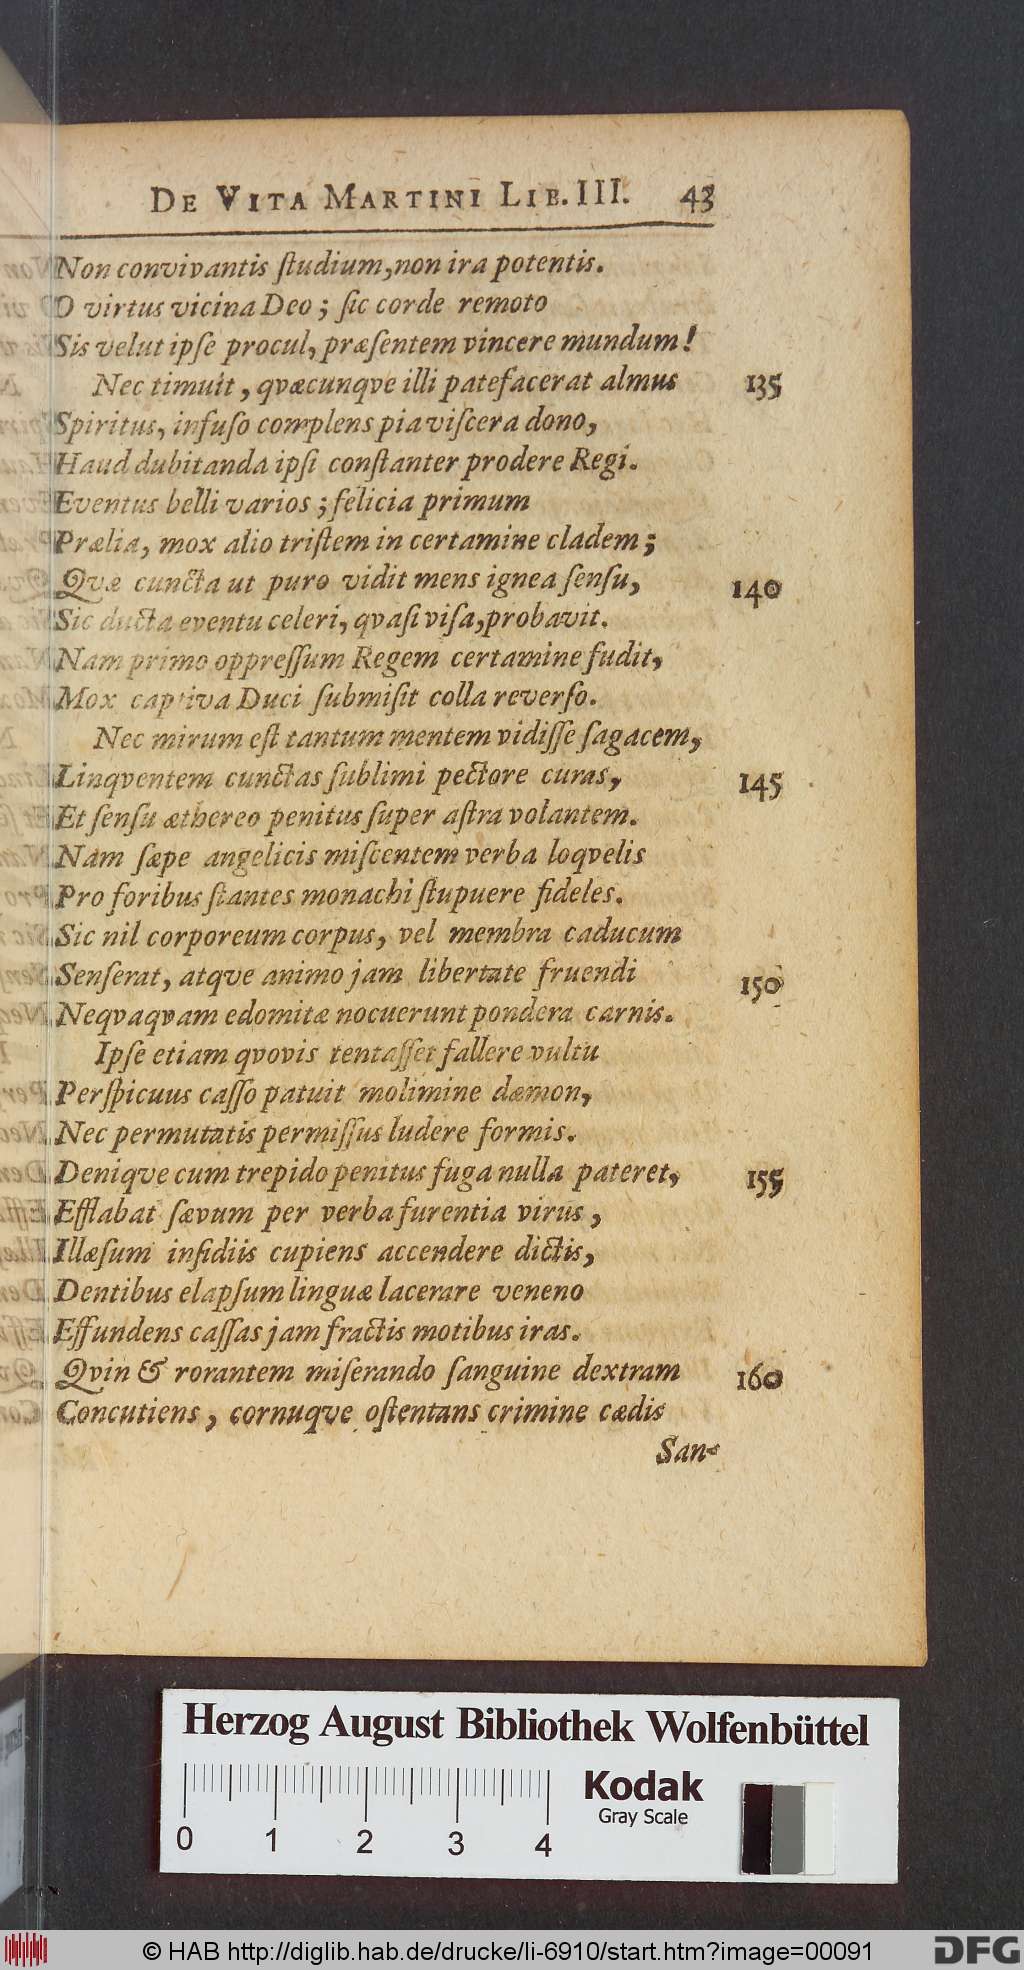 DE VITA MARTINI LIB. III. 43
Non convivantis ſtudium, non ira potentis.
O virtus vicina Deo; ſic corde remoto
Sis velut ipſe procul, præſentem vincere mundum!
Nec timuit, qvæcunqve illi patefacerat almus 135
Spiritus, infuſo complens pia viſcera dono,
Haud dubitanda ipſi conſtanter prodere Regi.
Eventus belli varios; felicia primum
Prælia, mox alio triſtem in certamine cladem;
Qvæ cuncta ut puro vidit mens ignea ſenſu, 140
Sic ducta eventu celeri, qvaſi viſa, probavit.
Nam primo oppreſſum Regem certamine fudit,
Mox captiva Duci ſubmiſit colla reverſo.
Nec mirum eſt tantum mentem vidiſſe ſagacem,
Linqventem cunctas ſublimi pectore curas, 145
Et ſenſu æthereo penitus ſuper aſtra volantem.
Nam ſæpe angelicis miſcentem verba loqvelis
Pro foribus ſtantes monachi ſtupuere fideles.
Sic nil corporeum corpus, vel membra caducum
Senſerat, atqve animo jam libertate fruendi 150
Neqvaqvam edomitæ nocuerunt pondera carnis.
Ipſe etiam qvovis tentaſſet fallere vultu
Perſpicuus caſſo patuit molimine dæmon,
Nec permutatis permiſſus ludere formis.
Deniqve cum trepido penitus fuga nulla pateret, 155
Efflabat ſævum per verba furentia virus,
Illæſum inſidiis cupiens accendere dictis,
Dentibus elapſum linguæ lacerare veneno
Effundens caſſas jam fractis motibus iras.
Qvin & rorantem miſerando ſanguine dextram 160
Concutiens, cornuqve oſtentans crimine cædis
San-
Herzog August Bibliothek Wolfenbüttel
0 1 2 3 4
Kodak
Gray Scale
© HAB http://diglib.hab.de/drucke/li-6910/start.htm?image=00091
DFG